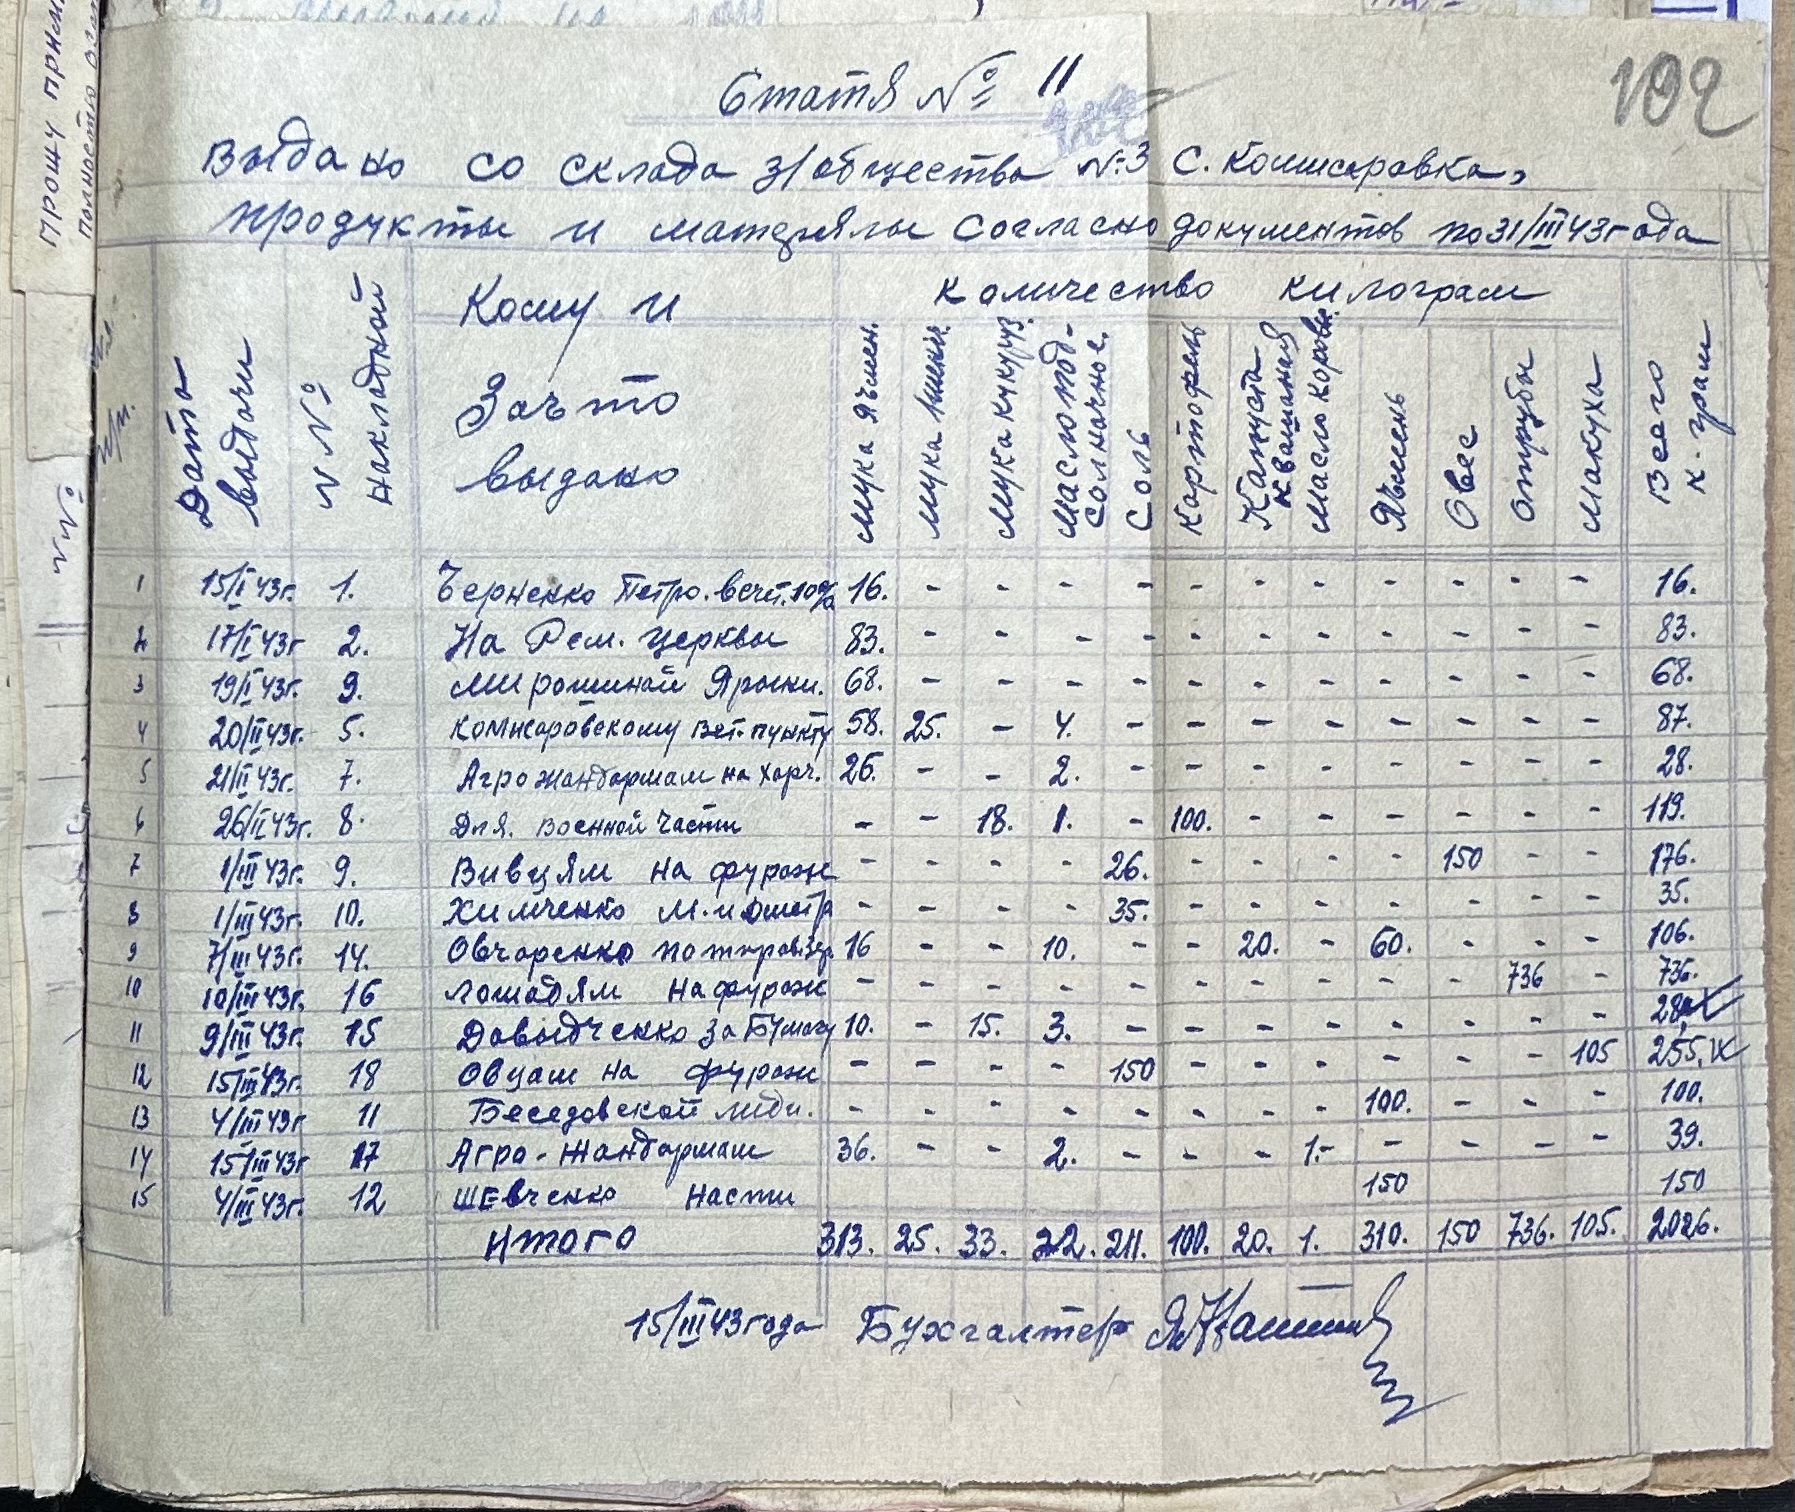 Статя № 11
102
Выдано со склада з/общества №3 с. Комисаровка,
продукты и матерялы согласно документов по 31/III 43 года
Дата выдачи
№№ накладной
Кому и
За что
выдано
Количество килограм
Мука ячмен.
Мука
Мука кукуруз.
Масло под-солначное
Соль
Картофель
Капуста квашаная
Масло коров.
Ячмень
Овес
Отрубы
Макуха
Всего к-грам
1 15/I 43г. 1. Черненко Петро. в счет. 10% 16. - - - - - - - - - - - 16.
2 17/I 43г 2. На Рем. церквы 83. - - - - - - - - - - - 83.
3 19/I 43г. 9. Мирошиной Ярыни. 68. - - - - - - - - - - - 68.
4 20/II 43г. 5. Комисаровскому Вет-пункту 58. 25. - 4. - - - - - - - - 87.
5 21/II 43г. 7. Агрожандармам на харч. 26. - - 2. - - - - - - - - 28.
6 26/II 43г. 8. Для. военной части - - 18. 1. - 100. - - - - - - 119.
7 1/III 43г. 9. Вивцям на фураж - - - - 26. - - - - 150 - - 176.
8 1/III 43г. 10. Химченко М. и Дмитр - - - - 35. - - - - - - - 35.
9 7/III 43г. 14. Овчаренко 16 - - 10. - - 20. - 60. - - - 106.
10 10/III 43г. 16 Лошадям на фураж - - - - - - - - - - 736 - 736.
11 9/III 43г. 15 Давыдченко за Бумагу 10. - 15. 3. - - - - - - - - 28.
12 15/III 43г. 18 Овцам на фураж - - - - 150 - - - - - - 105 255.
13 4/III 43г 11 Беседовской лиди. - - - - - - - - 100. - - - 100.
14 15/III 43г 17 Агро-Жандармам 36. - - 2. - - - 1.- - - - - 39.
15 4/III 43г. 12 Шевченко Насти 150 150
Итого 313. 25. 33. 22. 211. 100. 20. 1. 310. 150 736. 105. 2026.
15/III 43 года Бухгалтер
Прошу
полностью
№№